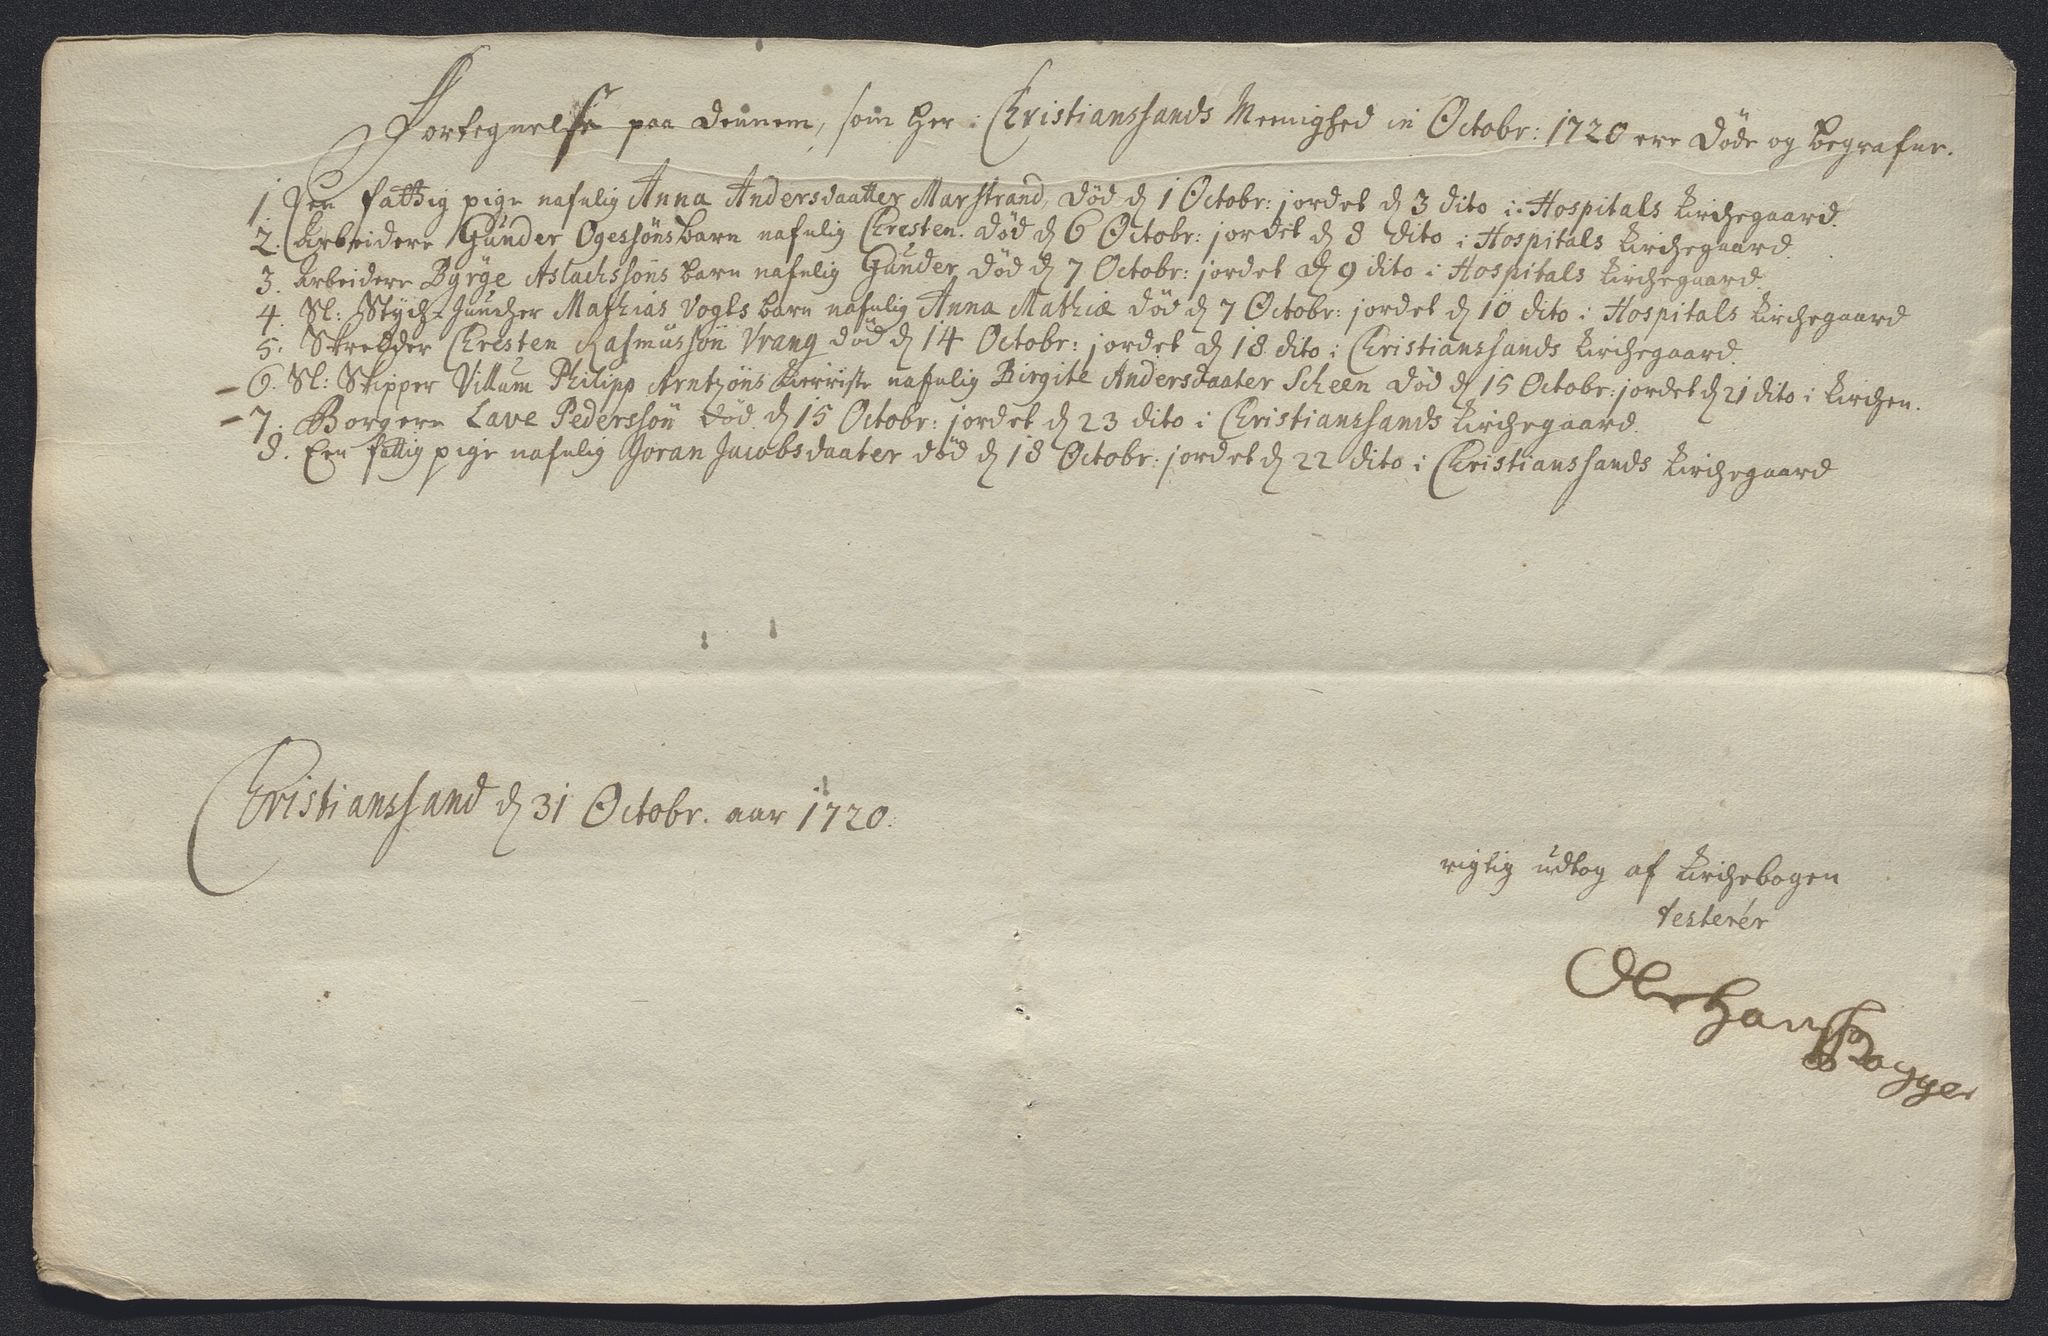 Fortegnelse paa dennem, som her i Christianssands Meenighed in Octobr: 1720 ere døde og begrafne.
1. Een fattig pige nafnlig Anna Andersdaatter Marstrand, død d 1 Octobr: jordet d 3 dito i Hospitals Kirchegaard.
2. Arbeidere Gunder Ogessøns barn nafnlig Christen. død d 6 Octobr: jordet d 8 dito i Hospitals Kirchegaard.
3. Arbeidere Byrge Aslachssøns barn nafnlig Gunder død d 7 Octobr: jordet d 9 dito i Hospitals Kirchegaard.
4. Sl: Stÿch-Juncher Mathias Vogts barn nafnlig Anna Mathiæ død d 7 Octobr: jordet d 10 dito i Hospitals Kirchegaard
5. Skredder Christen Rasmussøn Vrang død d 14 Octobr: jordet d 18 dito i Christianssands Kirchegaard.
6. Sl: Skipper Villum Philipp Arntzøns nafnlig Birgite Andersdaater Scheen død d 15 Octobr: jordet d 21 dito i Kirchen.
7. Borgere Lave Pederssøn død d 15 Octobr: jordet d 23 dito i Christianssands Kirchegaard.
8. Een fattig pige nafnlig Joran Jacobsdaater død d 18 Octobr: jordet d 22 dito i Christianssands Kirchegaard
Christianssand d 31 Octobr. aar 1720.
rigtig udtog af Kirchebogen
testerer
Ole Hanss Bagger